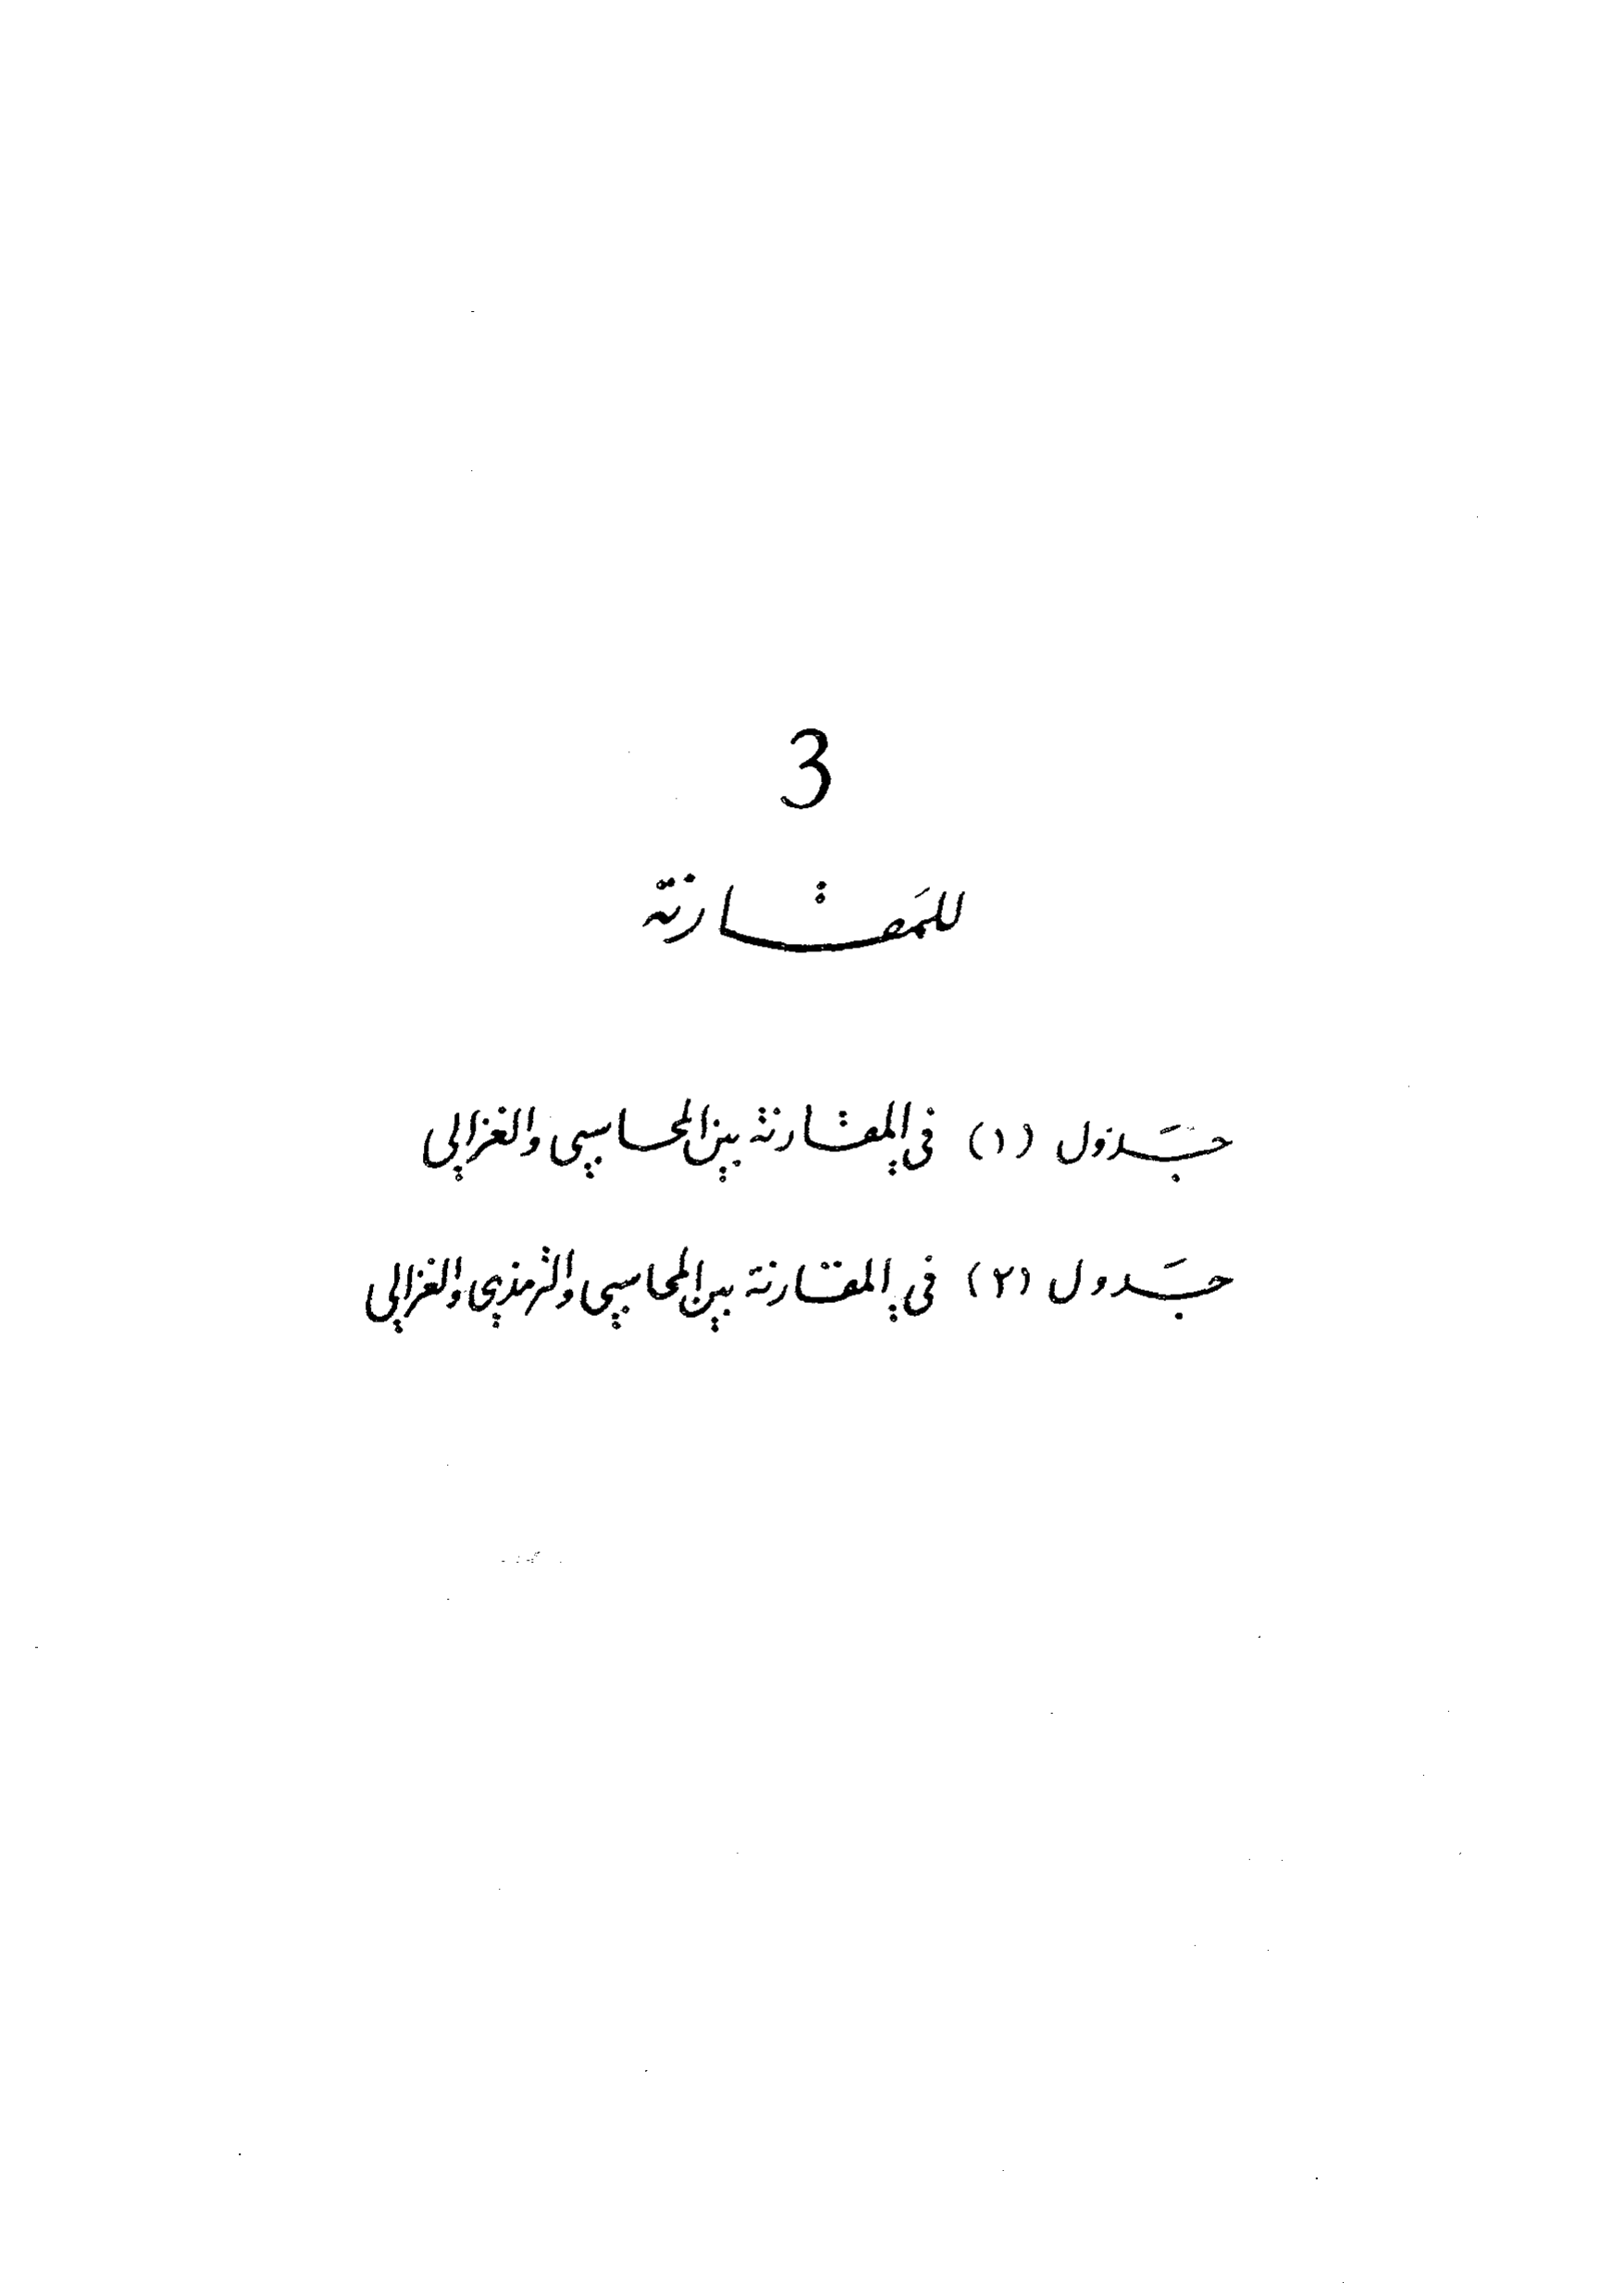 3
للمَقارنة
جَدول (١) في المقارنة بين المحاسبي والغزالي
جَدول (٢) في المقارنة بين المحاسبي والترمذي والغزالي